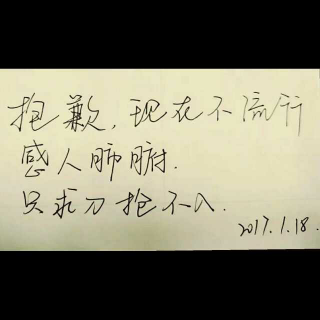 抱歉，现在不流行
感人肺腑.
只求刀抢不入.
2017.1.18.